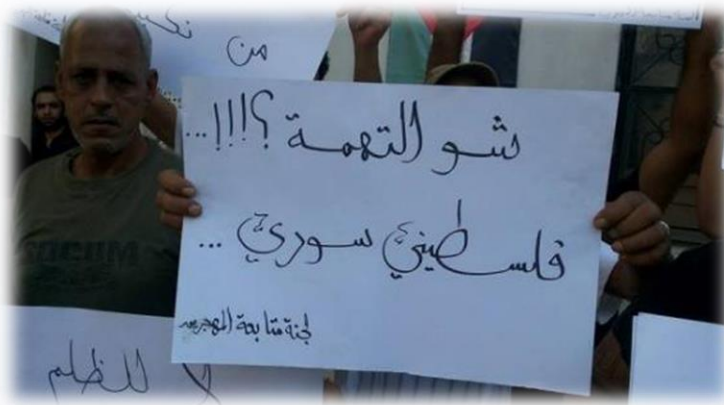 من
شو التهمة؟!!!...
فلسطيني سوري...
لجنة متابعة المهجرين
لا للظلم
SOCOM